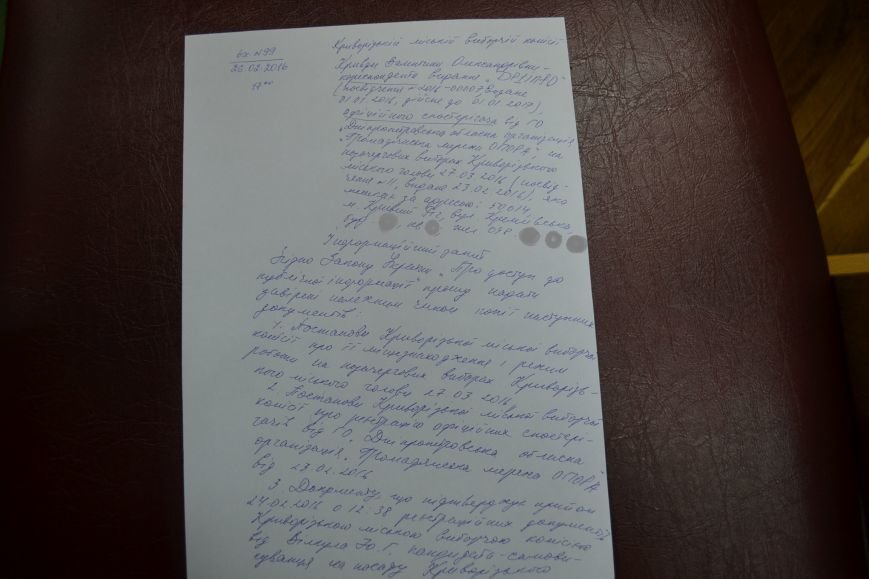 вх. №99
26.02.2016
17⁰⁰
Криворізькій міській виборчій комісії
Кривди Валентини Олександрівни -
кореспондента видання
(посвідчення № 2016-00007 видане
01.01.2016, дійсне до 01.01.2017),
офіційного спостерігача від ГО
„Дніпропетровська обласна організація
„Громадянська мережа ОПОРА", на
позачергових виборах Криворізького
міського голови 27.03.2016 (посвід-
чення №11, видане 23.02.2016), яка
мешкає за адресою: 50014,
м. Кривий Ріг, вул.
буд , кв тел 098
Інформаційний запит
Згідно Закону України „Про доступ до
публічної інформації" прошу надати
завірені належним чином копії наступних
документів:
1. Постанови Криворізької міської виборчої
комісії про її місцезнаходження і режим
роботи на позачергових виборах Криворізь-
кого міського голови 27.03.2016
2. Постанови Криворізької міської виборчої
комісії про реєстрацію офіційних спостері-
гачів від ГО „Дніпропетровська обласна
організація „Громадянська мережа ОПОРА"
від 23.02.2016
3. Документу, що підтверджує прийом
24.02.2016 о 12:38 реєстраційних документів
Криворізькою міською виборчою комісією
від Вілкула Ю.Г. кандидата-самови-
сування на посаду Криворізького